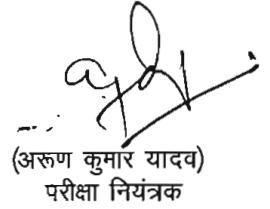 (अरूण कुमार यादव)
परीक्षा नियंत्रक